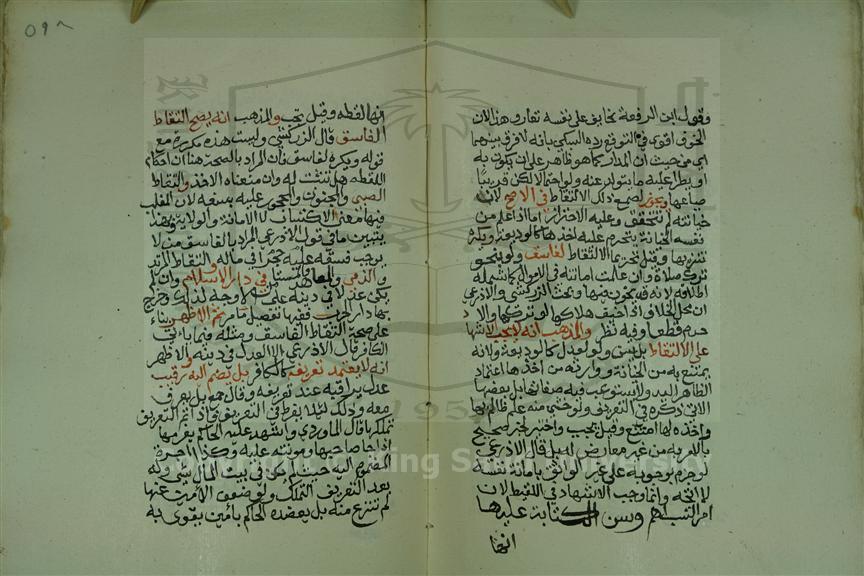 ٥٩٨
وقول ابن الرفعة بخلافه على نفسه تفارق هذا لان
الخوف اقوى في التوقع رده السبكي بانه لا فرق بينهما
اي من حيث ان المدار كما هو ظاهر على ان يكون به
او يطرا عليه ما يتولد عنه ولو احتمالا لكن قريبا
ضياعها ويجوز لجمع ذلك الالتقاط في الاصح لان
خيانته لم تتحقق وعليه الاحتراز اما اذا علم من
نفسه الخيانة فيحرم عليه اخذها كالوديعة ويكره
تنزيها وقيل تحريما الالتقاط لفاسق ولو بنحو
ترك صلاة وان علمت امانته في الاموال كما شمله
اطلاقهم لانه قد يخون فيها وبحث الزركشي والاذرعي
ان محل الخلاف اذا لم يخف هلاكها لو تركها والا
حرم قطعا وفيه نظر والمذهب انه لا يجب الاشهاد
على الالتقاط بل يسن ولو لعدل كالوديعة ولانه
يمتنع به من الخيانة و وارثه من اخذها اعتمادا
لظاهر اليد ولا يستوعب فيه صفاتها بل بعضها
الاتي ذكره في التعريف ولو خشي منه علم ظالم بها
واخذه لها امتنع وقيل يجب واختير لخبر صحيح
بالامر به من غير معارض له بل قال الاذرعي
لو جزم بوجوبه على غير الواثق بامانة نفسه
لاتجه وانما وجب الاشهاد في اللقيط لان
امر النسب اهم ويسن الكتابة عليها
انها
انها لقطة وقيل تجب والمذهب انه يصح التقاط
الفاسق قال الزركشي وليست هذه مكررة مع
قوله ويكره لفاسق فان المراد بالصحة هنا ان احكام
اللقطة هل تثبت له وان منعناه الاخذ والتقاط
الصبي والمجنون والمحجور عليه بسفه لان المغلب
فيها معنى الاكتساب لا الامانة والولاية وبهذا
يتبين ما في قول الاذرعي المراد بالفاسق من لا
يوجب فسقه عليه حجرا في ماله والتقاط المرتد
والذمي والمعاهد والمستامن في دار الاسلام وان لم
يكن عدلا في دينه على الاوجه لذلك وخرج
بها دار الحرب ففيها تفصيل مر ثم الاظهر بناء
على صحة التقاط الفاسق ومثله فيما ياتي
الكافر قال الاذرعي الا العدل في دينه والاظهر
انه لا يعتمد تعريفه كالكافر بل يضم اليه رقيب
عدل يراقبه عند تعريفه وقال جمع بل يعرف
معه وذلك لئلا يفرط في التعريف فاذا تم التعريف
تملكها قال الماوردي واشهد عليه الحاكم بغرمها
اذا جا صاحبها ومؤنته عليه وكذا اجرة
المضموم اليه حيث لم يكن في بيت المال شي وله
بعد التعريف التملك ولو ضعف الامين عنها
لم تنتزع منه بل يعضده الحاكم بامين يقوى به